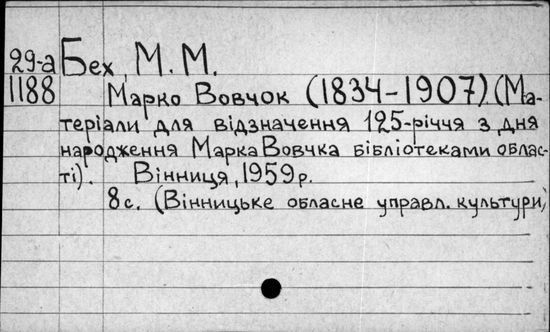 29-а Бех, М. М.
1188 Марко Вовчок (1834-1907). (Ма-
теріали для відзначення 125-річчя з дня
народження Марка Вовчка бібліотеками облас-
ті). Вінниця, 1959р.
8с. (Вінницьке обласне управл. культури,